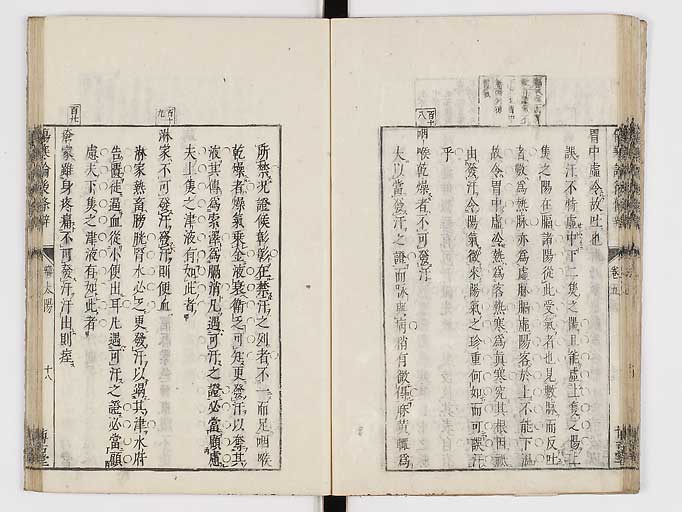 胃中虛冷故吐也
誤汗不特虛中下二焦之陽且能虛上焦之陽上
焦之陽在膈諸陽從此受氣者也見數脉而反吐
者數爲熱脉亦爲虛脉膈虛陽客於上不能下溫
故令胃中虛冷熱爲客熱寒爲眞寒究其根因秪
由發汗令陽氣微來陽氣之珍重何如而可誤汗
乎
百十八
咽喉乾燥不可發汗
夫以當發汗之證而脉與病稍有微
所禁况證候彰彰在禁汗之列者不一而足咽喉
乾燥者燥氣乘金液衰衞乏可知更發汗以奪其
液其傳爲索澤爲膈消凡遇可汗之證必當顧慮
夫上焦之津液有如此者
百十九
淋家不可發汗發汗則便血
淋家熱畜膀胱腎水必乏更發汗以竭其津水府
告匱徒逼血從小便出耳凡遇可汗之證必當顧
慮夫下焦之津液有如此者
百廿
瘡家雖身疼痛不可發汗汗出則痓
傷寒論後條辨
太陽
十八